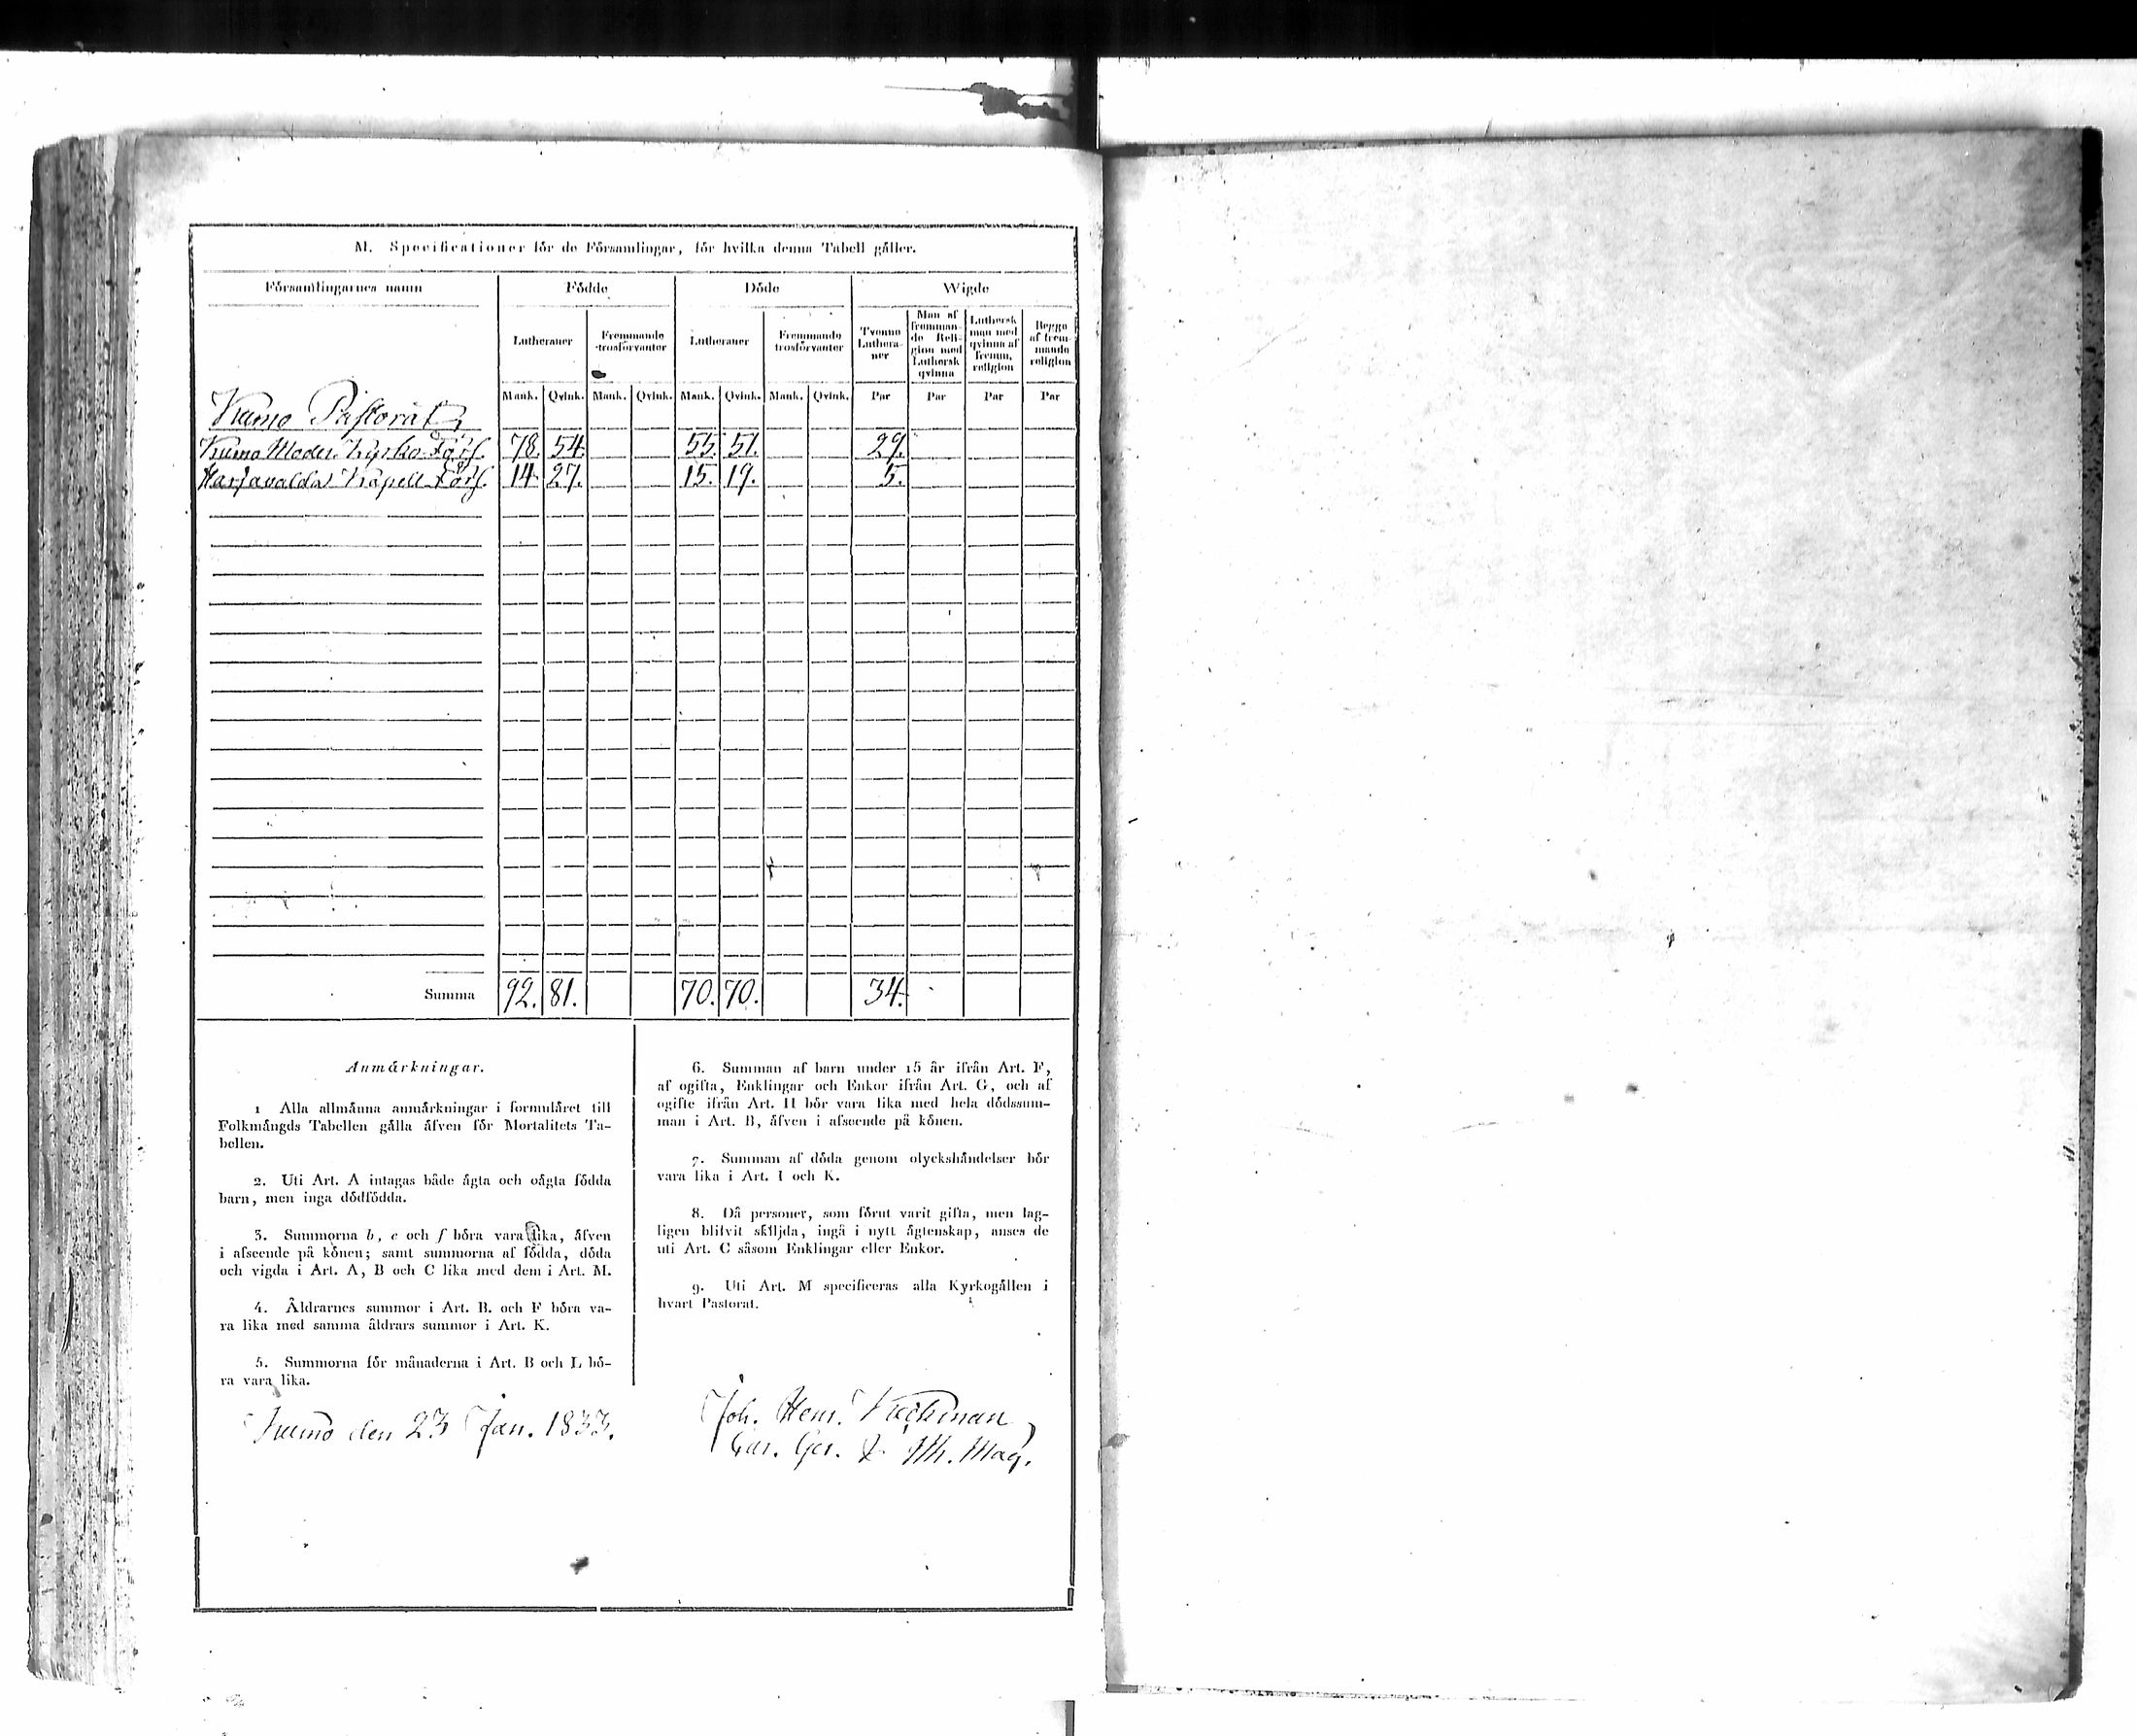 M. Specificationer för de Församlingar, för hvilka denna Tabell gäller.
Församlingarnes namn Födde Döde Wigde
Lutheraner Fremmande trosförvanter Lutheraner Fremmande trosförvanter Tvenne Luthera-ner Man af fremman-de Reli-gion med Luthersk qvinna Luthersk man med qvinna af fremm. religion Begge af frem-mande religion
Mank. Qvink. Mank. Qvink. Mank. Qvink. Mank. Qvink. Par Par Par Par
Kumo Pastorat
Kumo Moder Kyrko Förs. 78. 54. 55. 51. 29.
Harjavalda Kapell Förs. 14. 27. 15. 19. 5.
Summa 92. 81. 70. 70. 34.
Anmärkningar.
1 Alla allmänna anmärkningar i formuläret till
Folkmängds Tabellen gälla äfven för Mortalitets Ta-
bellen.
2. Uti Art. A intagas både ägta och oägta födda
barn, men inga dödfödda.
3. Summorna b, e och f böra vara lika, äfven
i afseende på könen; samt summorna af födda, döda
och vigda i Art. A, B och C lika med dem i Art. M.
4. Åldrarnes summor i Art. B. och F böra va-
ra lika med samma åldrars summor i Art. K.
5. Summorna för månaderna i Art. B och L bö-
ra vara lika.
6. Summan af barn under 15 år ifrån Art. F,
af ogifta, Enklingar och Enkor ifrån Art. G, och af
ogifte ifrån Art. H bör vara lika med hela dödssum-
man i Art. B, äfven i afseende på könen.
7. Summan af döda genom olyckshändelser bör
vara lika i Art. I och K.
8. Då personer, som förut varit gifta, men lag-
ligen blifvit skiljda, ingå i nytt ägtenskap, anses de
uti Art. C såsom Enklingar eller Enkor.
9. Uti Art. M specificeras alla Kyrkogällen i
hvart Pastorat.
Kumo den 23 Jan. 1833.
Joh. Henr.